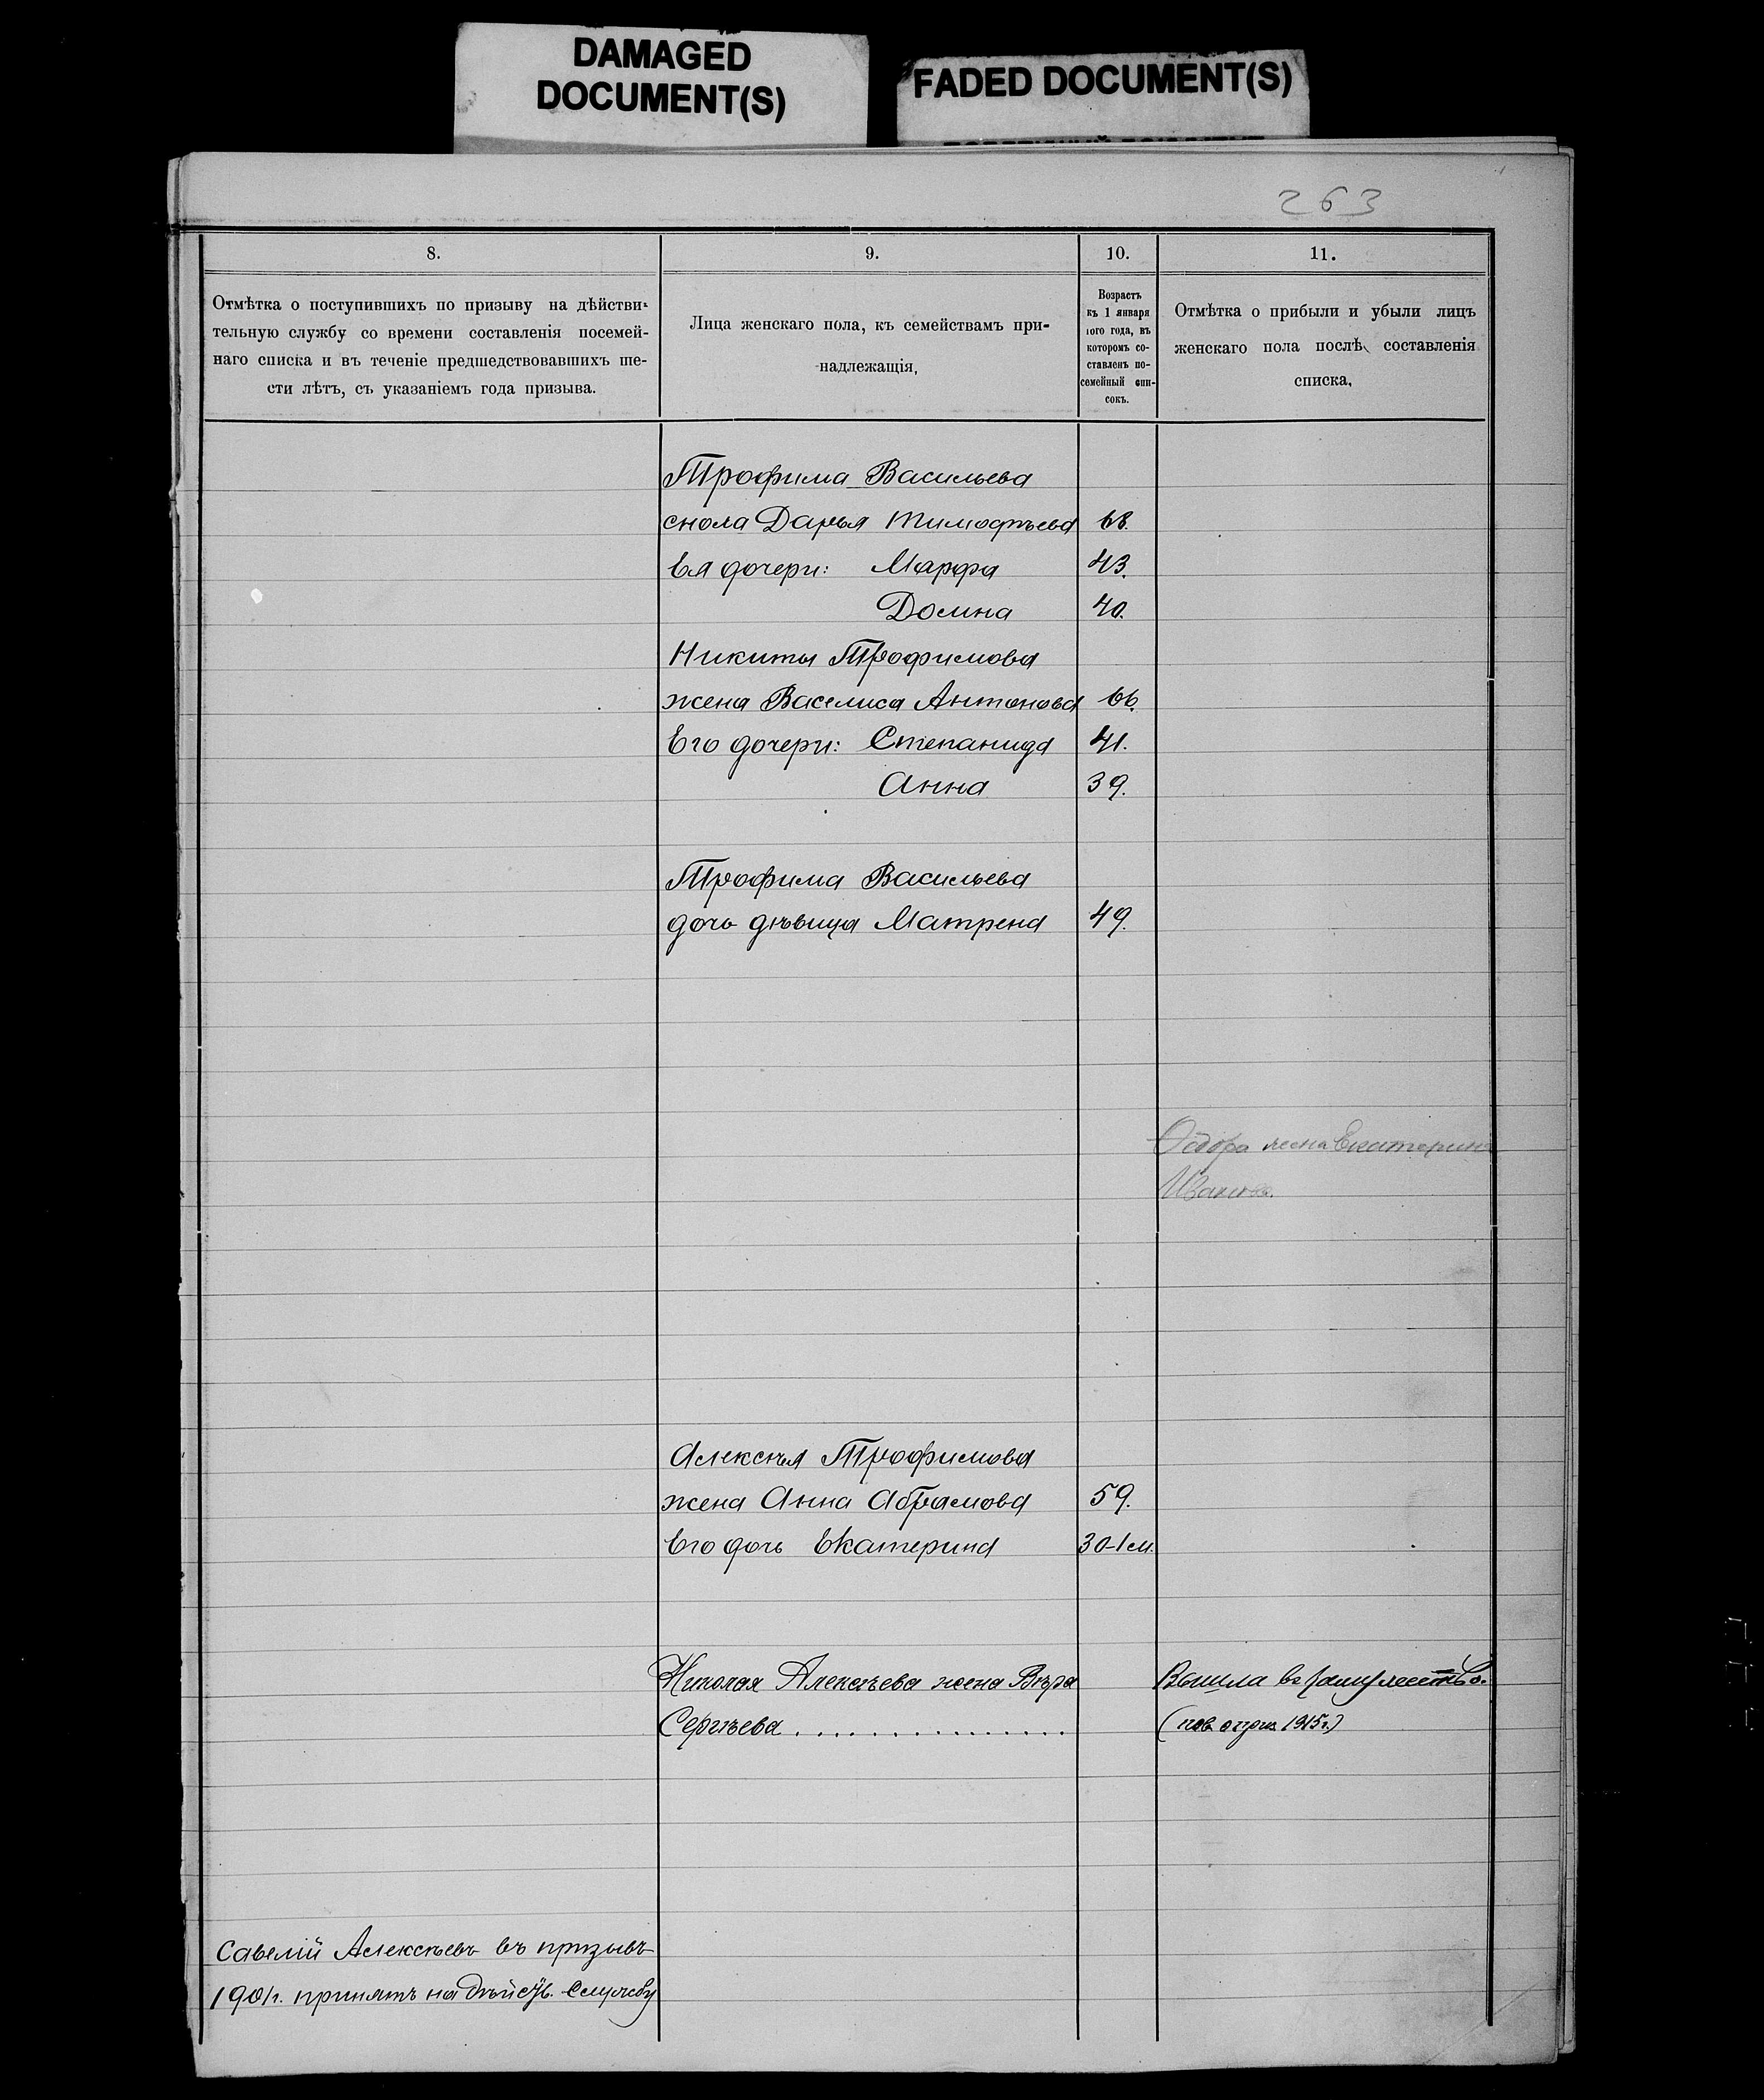 DAMAGED
DOCUMENT(S)
FADED DOCUMENT(S)
263
8.
9.
10.
11.
Отмѣтка о поступившихъ по призыву на дѣйстви-
тельную службу со времени составленія посемей-
наго списка и въ теченіе предшедствовавшихъ ше-
сти лѣтъ, съ указаніемъ года призыва.
Лица женскаго пола, къ семействамъ при-
надлежащія,
Возрастъ
къ 1 января
того года, въ
которомъ со-
ставленъ по-
семейный спи-
сокъ.
Отмѣтка о прибыли и убыли лицъ
женскаго пола послѣ составленія
списка,
Трофима Васильева
сноха Дарья Тимофѣева 68.
Ея дочери: Марфа 43.
Домна 40.
Никиты Трофимова
жена Васелиса Антонова 66.
Его дочери: Степанида 41.
Анна 39.
Трофима Васильева
дочь дѣвица Матрена 49.
Ѳедора жена Екатерина
Иванова.
Алексѣя Трофимова
жена Анна Абрамова 59.
Его дочь Екатерина 30-1 м.
Николая Алексѣева жена Вѣра Вышла въ замужество.
Сергѣева . . . . . . . . . . . . . . . (1915г.)
Савелій Алексѣевъ въ призывъ
1901г. принятъ на дѣйств. службу